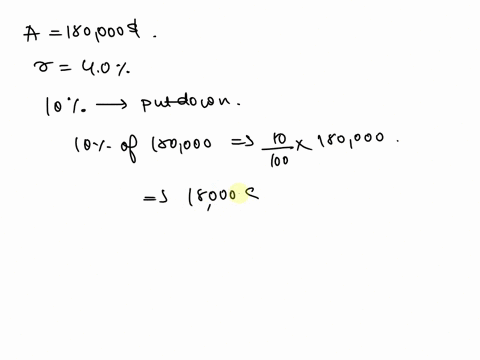 A = 180,000$.
r = 4.0%
10% → putdown.
10% of 180,000 ⇒ 10/100 × 180,000.
⇒ 18,000$